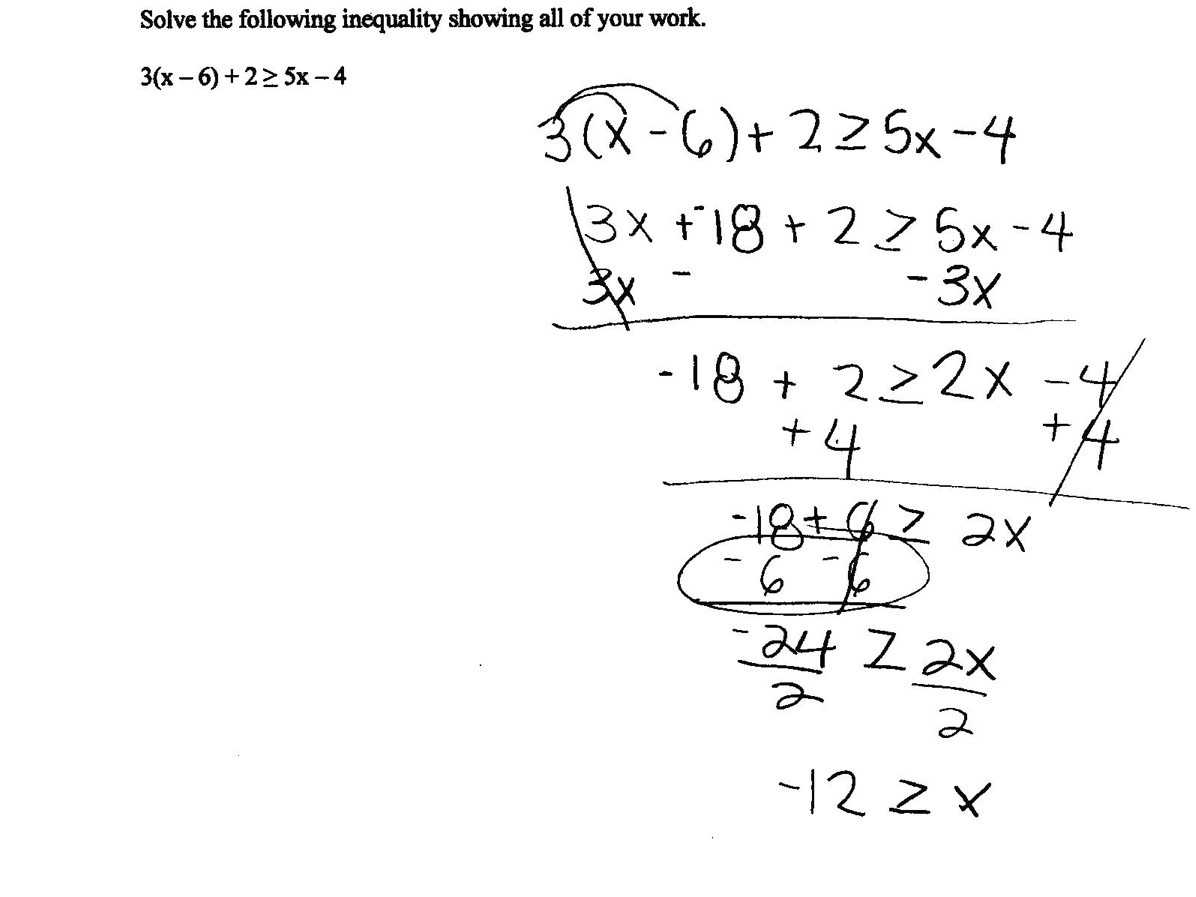 Solve the following inequality showing all of your work.
3(x – 6) + 2 ≥ 5x – 4
3(x - 6) + 2 ≥ 5x - 4
3x + -18 + 2 ≥ 5x - 4
3x - - 3x
-18 + 2 ≥ 2x - 4
+ 4 + 4
-18 + 6 ≥ 2x
- 6 - 6
-24 ≥ 2x
2 2
-12 ≥ x